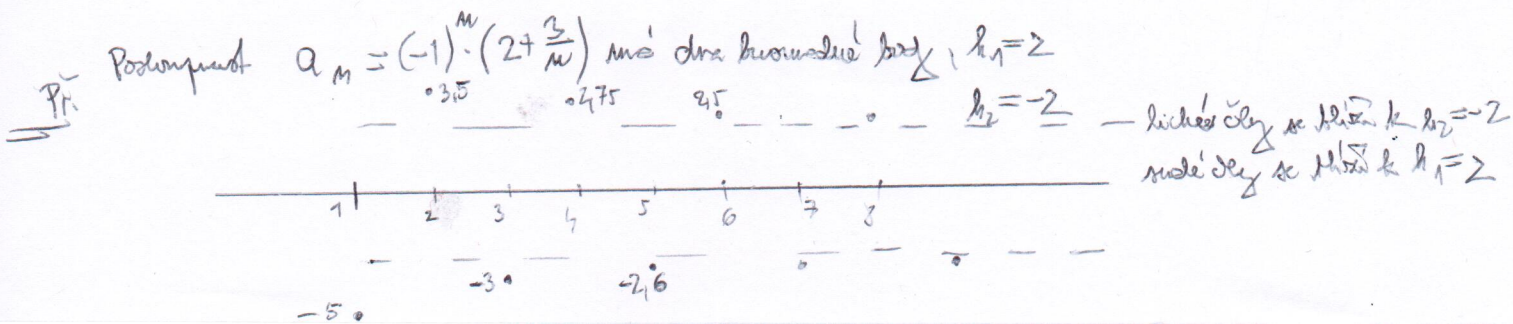 Př. Posloupnost a_n = (-1)^n · (2 + 3/n) má dva hromadné body, h_1 = 2
h_2 = -2
3,5 2,75 2,5
— lichés členy se blíží k h_2 = -2
sudé členy se blíží k h_1 = 2
1 2 3 4 5 6 7 8
-3 -2,6
-5